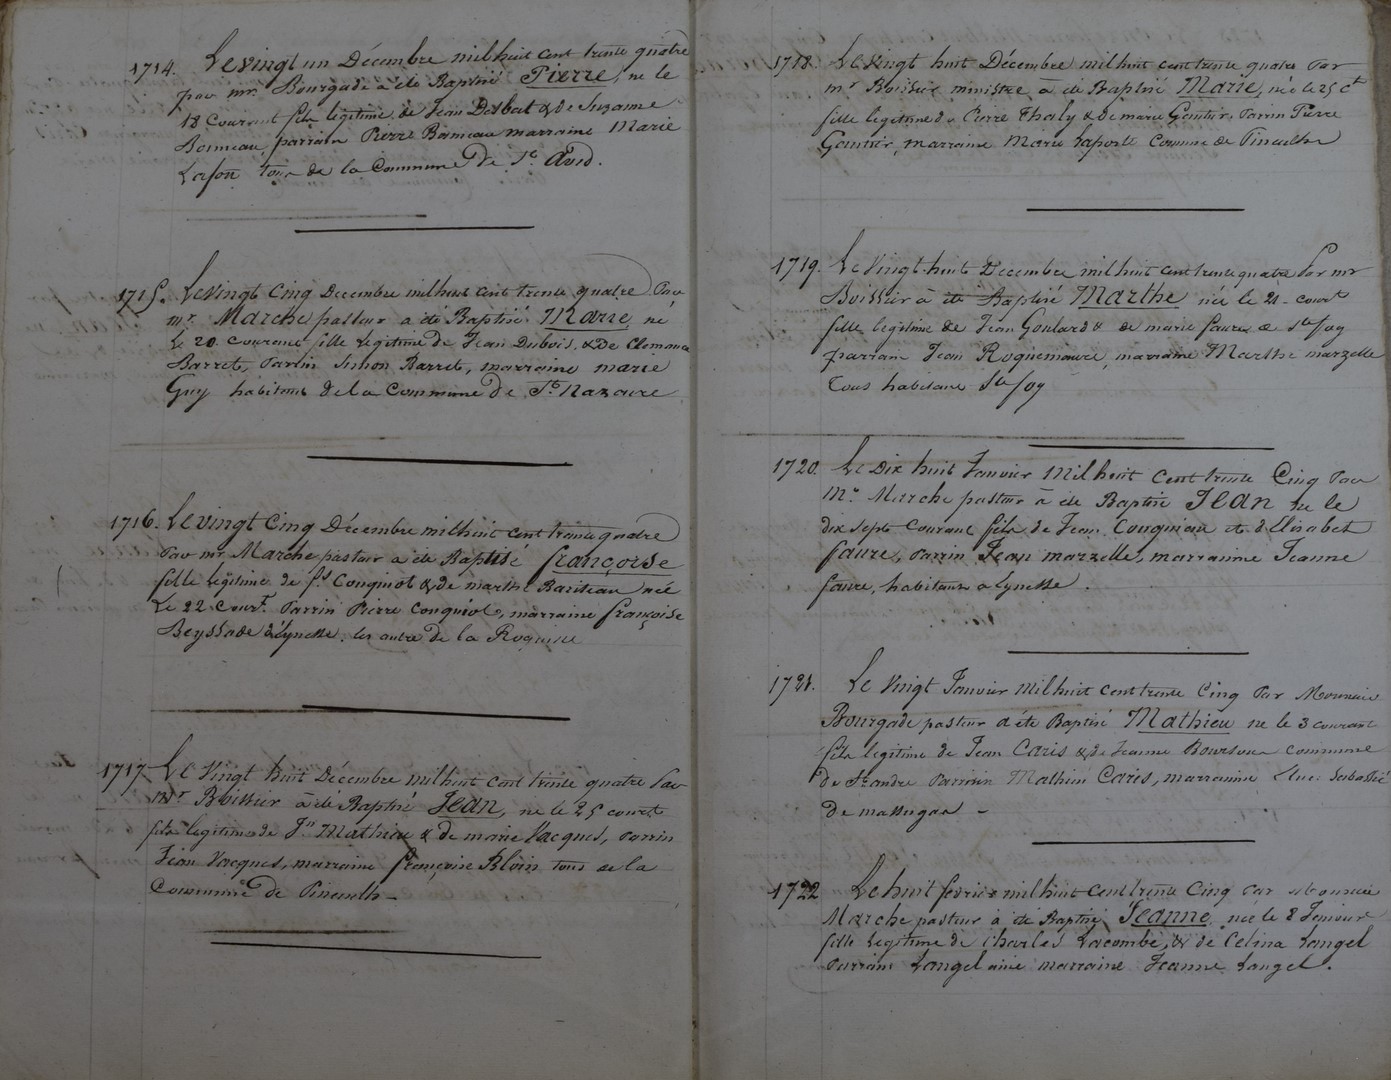 1714. Le vingt un Décembre mil huit cent trente quatre
par mr. Bourgade à été Baptisé Pierre, ne le
18 Courant fils legitime de Jean Desbat & de Suzanne
parrain Pierre marraine Marie
Lafon tous de la Commune de St. Avid.
1715. Le vingt Cinq Decembre mil huit cent trente quatre Par
mr. Marche pasteur a été Baptisé Marie né
le 20 Courant fille legitime de Jean Dubois, & De Clemence
Barret, Parrin Simon Barret, marraine marie
Guy habitant de la Commune de St. Nazaire
1716. Le vingt Cinq Décembre mil huit cent trente quatre
Par mr Marche pasteur a été Baptisé françoise
fille legitime de fs Couquiol & de marthe Bariteau née
Le 22 Court. Parrin Pierre Couquiol, marraine françoise
Beyssade d'Eynesse. les autre de la Roquille
1717 Le Vingt huit Décembre mil huit cent trente quatre Par
mr Boissier à été Baptisé Jean, ne le 25 court
fils legitime de Jn Mathieu & de marie Vacques, Parrin
Jean Vacques, marraine françoise Blois tous de la
Commune de Pineuilh -
1718. Le Vingt huit Décembre mil huit cent trente quatre Par
mr Boissier ministre à été Baptisé Marie, née le 25 Ct
fille legitime de Pierre Thaly & de marie Gautier, Parrin Pierre
Gautier, marraine Marie Laporte Comune de Pineuilh
1719. Le Vingt-huit Decembre mil huit cent trente quatre Par mr
Boissier à été Baptisé Marthe née le 21 court
fille legitime de Jean Goulard & de marie faures de Ste foy
parrain Jean Roquemaure, marraine Marthe marzelle
Tous habitans Ste foy
1720. Le Dix huit Janvier Mil huit Cent trente Cinq Par
Mr. Marche pasteur à été Baptisé Jean né le
dix sept Courant fils de Jean Couquiau et d'Elisabeth
faure, Parrin Jean marzelle, marrainne Jeanne
faure, habitans a Eynesse.
1721. Le Vingt Janvier Mil huit cent trente Cinq Par Monsieur
Bourgade pasteur a été Baptisé Mathieu ne le 3 courant
fils legitime de Jean Caris & de Jeanne commune
de St andre Parrain Mathieu Caris, marrainne
de massugas -
1722 Le huit fevrier mil huit cent trente Cinq Par Monsieur
Marche pasteur à été Baptisé Jeanne, née le 8 Janvier
fille Legitime de Charles Lacombe, & de Celina Langel
Parrain Langel ainé marraine Jeanne Langel.